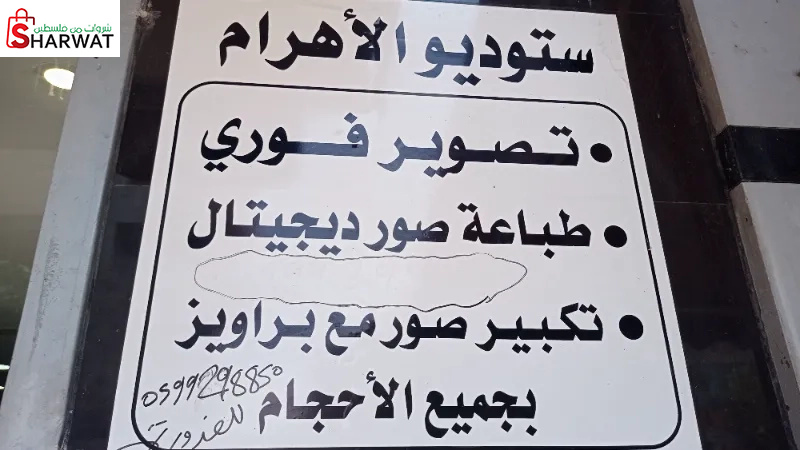 شروات من فلسطين
SHARWAT
ستوديو الأهرام
• تصوير فوري
• طباعة صور ديجيتال
• تكبير صور مع براويز
بجميع الأحجام
0599298850
للضرورة